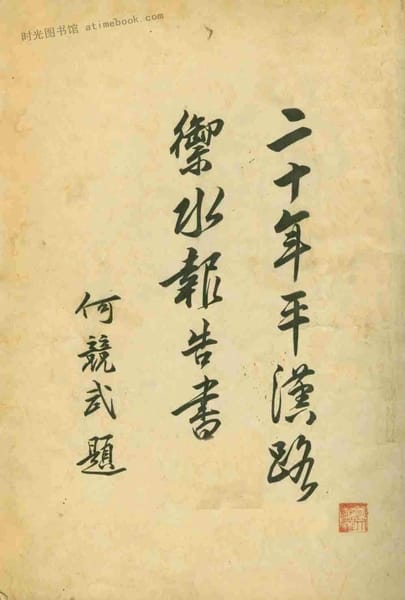 时光图书馆 atimebook.com
二十年平漢路
禦水報告書
何競武題